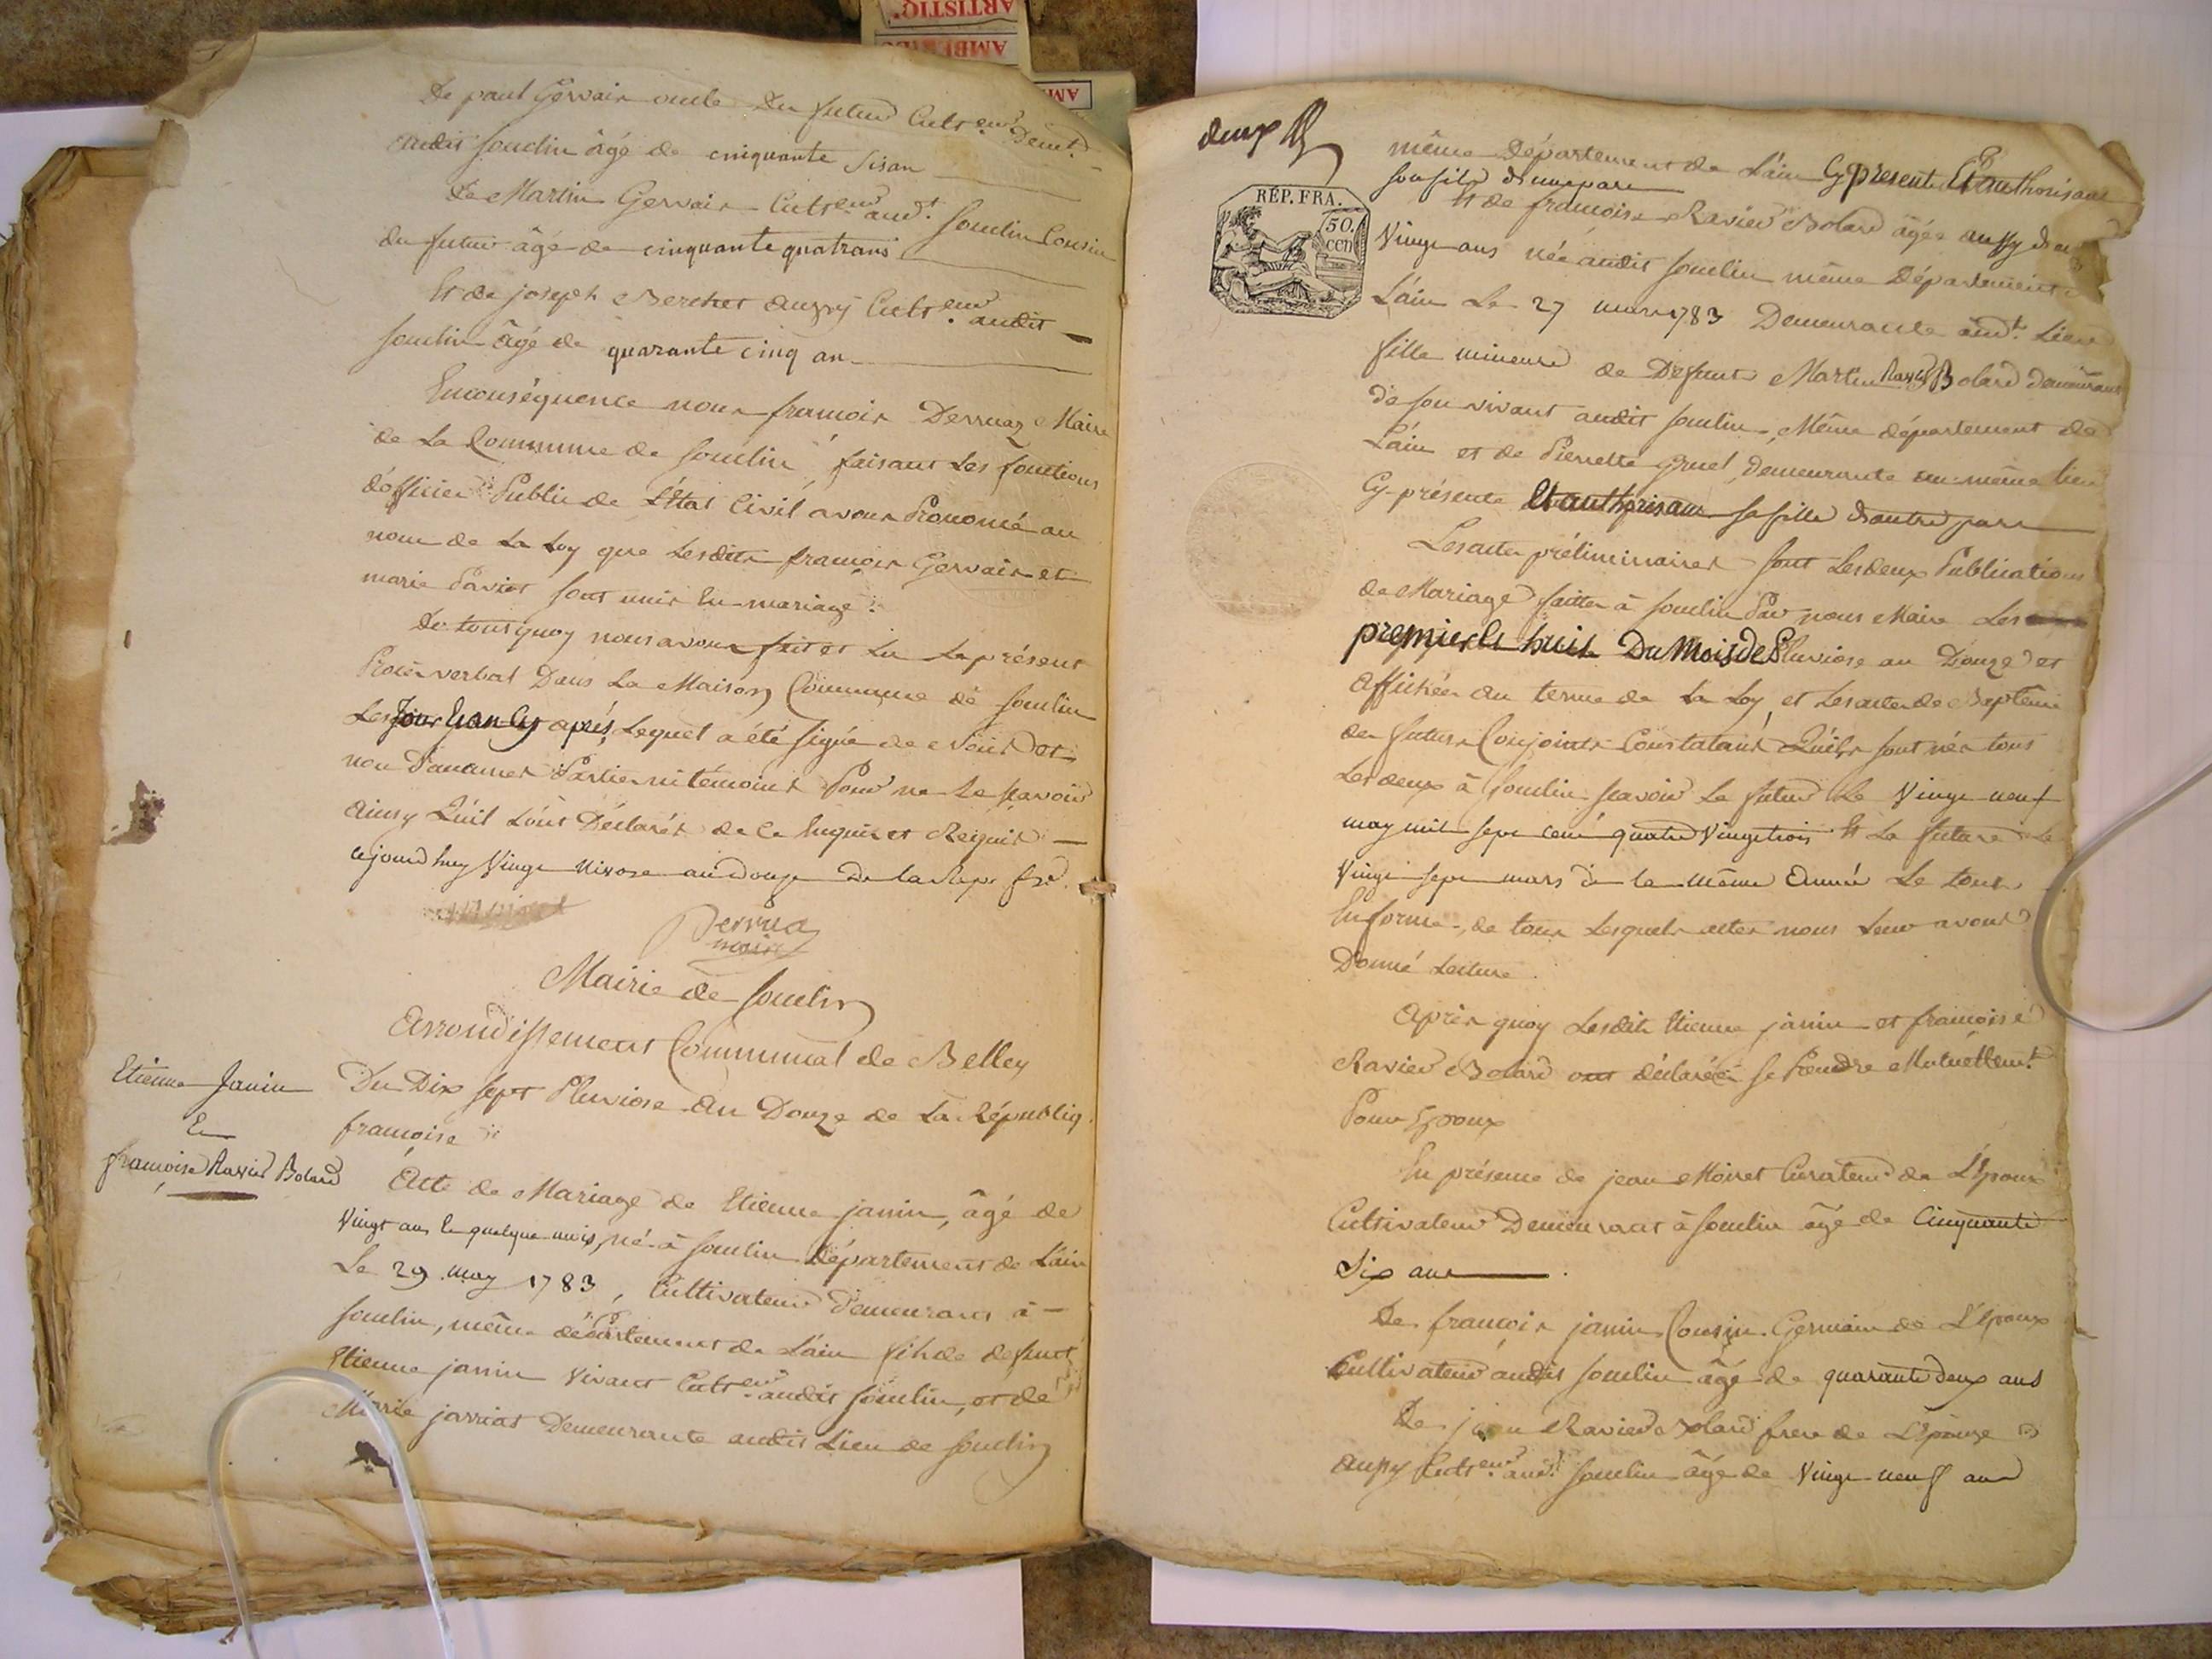 De paul Gervais oncle du futur Cult.eur Demt.
audit Soudin âgé de cinquante sixan
de Martin Gervais Cult.eur aud.t Soudin Cousin
du futur âgé de cinquante quatrans
Et de joseph Berthet aussy Cult.eur audit
Soudin âgé de quarante cinq an
Enconséquence nous françois Derruaz Maire
de La Commune de Soudin, faisant Les fonctions
d'officier Public de L'état Civil avons Prononcé au
nom de La Loy que Lesdits françois Gervais et
marie Paviot sont unis En mariage.
De tout quoy nous avons fait et Lu Le présent
Procès verbal Dans La Maison Commune de Soudin
Les Jour Et an Cy après, Lequel a été signé de Nous et
non D'aucunes Parties ni témoins Pour ne Le sçavoir
Ainsy Qu'il L'ont Déclarés de Ce Enquis et Requis
cejourdhuy Vingt Nivose an douze De la Rep. fse.
Derruaz
maire
Mairie de Soudin
Arrondissement Communal de Belley
Etienne Janin
Et
françoise Ravier Bolard
Du Dix sept Pluviose An Douze de La Républiq.
françoise
Acte de Mariage de Etienne janin, âgé de
Vingt ans Et quelque mois, né à Soudin Département de L'ain
Le 29 may 1783, Cultivateur Demeurant à
Soudin, même département de L'ain fils de defunt
Etienne janin Vivant Cult.eur audit Soudin, et de
Marie jarriat Demeurante audit Lieu de Soudin
deux
REP. FRA.
50.
cen
même Département de L'ain Cy presente Et authorisant
son fils d'une part
Et de françoise Ravier Bolard âgée aussy de
Vingt ans née audit Soudin même Département
L'ain Le 27 mars 1783 Demeurante aud.t Lieu
fille mineure de Defunt Martin Ravier Bolard demeurant
de son vivant audit Soudin, Même département de
L'ain et de Pierrette gruel, demeurante au même lieu
Cy-présente Et authorisant sa fille d'autre part
Les actes préliminaires sont Les deux Publications
de Mariage faittes à Soudin Par nous Maire Les
premier Et huit Du Mois de Pluviose an Douze et
Affichées au terme de La Loy, et Les actes de Baptême
des futurs Conjoints Constatant Qu'ils sont nés tous
Les deux à Soudin sçavoir Le futur Le Vingt neuf
may mil sept cent quatre Vingt trois Et La future Le
Vingt sept mars de la même Année Le tout
En forme, de tous Lesquels actes nous Leur avons
Donné Lecture.
Après quoy Lesdits Etienne janin et françoise
Ravier Bolard ont déclarés se Prendre Mutuellem.t
Pour Epoux
En présence de jean Moiret Curateur de L'Epoux
Cultivateur Demeurant à Soudin âgé de Cinquante
Six ans.
De françois janin Cousin Germain de L'Epoux
Cultivateur audit Soudin âgé de quarante deux ans
De jean Ravier Bolard frere de L'épouse
aussy Cult.eur aud.t Soudin âgé de Vingt neuf ans